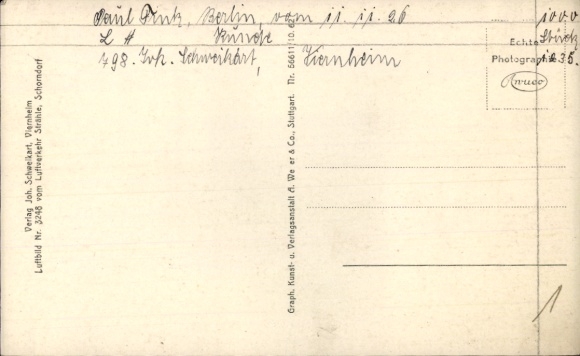 Paul Fink, Berlin, vom 11. 11. 26
1000
L #
Kunde
Stück
798. Joh. Schweikart, Viernheim
à 35.
Echte
Photographie
Awuco
Verlag Joh. Schweikart, Viernheim
Luftbild Nr. 3248 vom Luftverkehr Strähle, Schorndorf
Graph. Kunst- u. Verlagsanstalt A. We er & Co., Stuttgart. Nr. 66611/10. 62
1